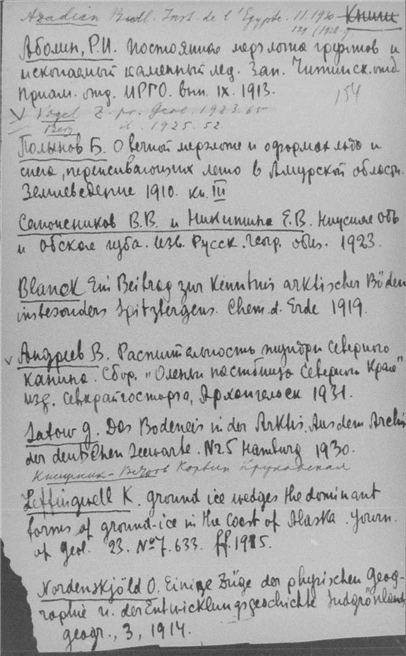 Azadian Bull. Inst. de l'Egypte. 11. 1930 Книги
Аболин, Р.И. Постоянная мерзлота грунтов и
ископаемый каменный лед. Зап. Читинск. отд.
Приам. отд. ИРГО. вып. IX. 1913. 154
Vogel Z. pr. Geol. 1923. 65
Berg 1925. 52.
Полынов Б. О вечной мерзлоте и о формах льда и
снега, пересиливающих лето в Амурской области.
Землеведение 1910. кн. III
Сапожников В.В. и Никитина Е.В. Низшая Обь
и Обская губа. Изв. Русск. Геогр. общ. 1923.
Blanck Ein Beitrag zur Kenntnis arktischer Böden
insbesonders Spitzbergens. Chem. d. Erde 1919.
Андреев В. Растительность тундры Северного
Канина. Сбор. "Оленьи пастбища Северного Края"
изд. Севкрайгосторга, Архангельск 1931.
Das Bodeneis in der Arktis. Aus dem Archiv
der deutschen Seewarte. N25 Hamburg 1930.
Leffingwell K. ground ice wedges the dominant
forms of ground-ice in the Coast of Alaska. Journ.
of geol. 23. No 7. 633. ff. 1915.
Nordenskjöld O. Einige Züge der physischen Geog-
raphie u. der Entwicklungsgeschichte Südgrönlands
geogr., 3, 1914.